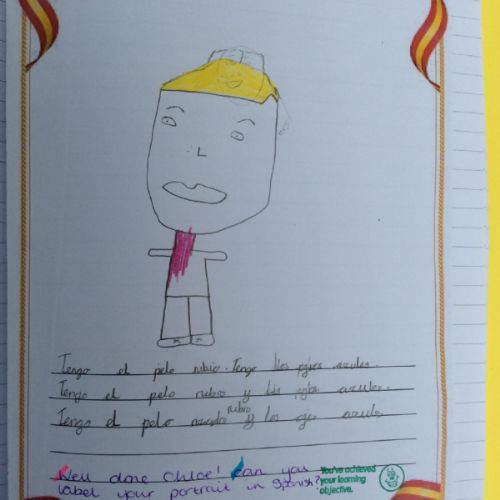 Tengo el pelo rubio. Tengo los ojos azules.
Tengo el pelo rubio y los ojos azules.
Tengo el pelo rubio y los ojos azules
Well done Chloe! Can you
label your portrait in Spanish?
You've achieved
your learning
objective.